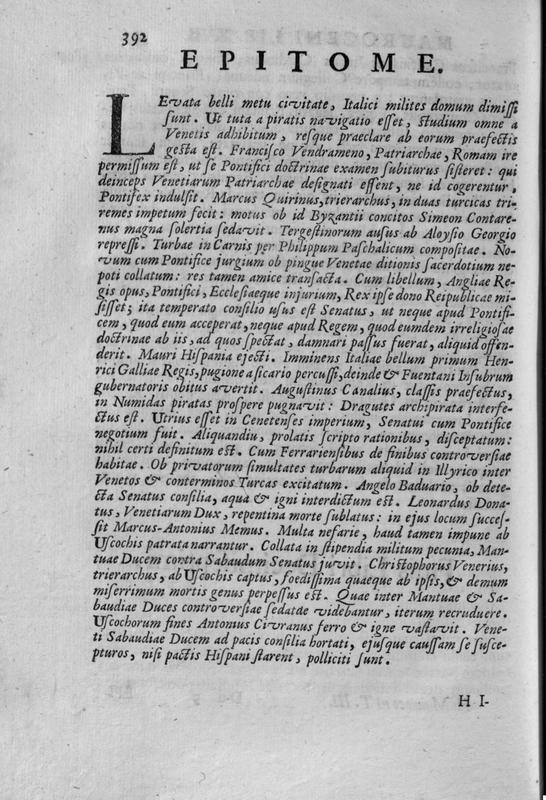 392
EPITOME.
LEvata belli metu civitate, Italici milites domum dimissi
sunt. Ut tuta a piratis navigatio esset, studium omne a
Venetis adhibitum, resque praeclare ab eorum praefectis
gesta est. Francisco Vendrameno, Patriarchae, Romam ire
permissum est, ut se Pontifici doctrinae examen subiturus sisteret: qui
deinceps Venetiarum Patriarchae designati essent, ne id cogerentur,
Pontifex indulsit. Marcus Quirinus, trierarchus, in duas turcicas tri-
remes impetum fecit: motus ob id Byzantii concitos Simeon Contare-
nus magna solertia sedavit. Tergestinorum ausus ab Aloysio Georgio
repressi. Turbae in Carnis per Philippum Paschalicum compositae. No-
vum cum Pontifice jurgium ob pingue Venetae ditionis sacerdotium ne-
poti collatum: res tamen amice transacta. Cum libellum, Angliae Re-
gis opus, Pontifici, Ecclesiaeque injurium, Rex ipse dono Reipublicae mi-
sisset; ita temperato consilio usus est Senatus, ut neque apud Pontifi-
cem, quod eum acceperat, neque apud Regem, quod eumdem irreligiosae
doctrinae ab iis, ad quos spectat, damnari passus fuerat, aliquid offen-
derit. Mauri Hispania ejecti. Imminens Italiae bellum primum Hen-
rici Galliae Regis, pugione a sicario percussi, deinde & Fuentani Insubrum
gubernatoris obitus avertit. Augustinus Canalius, classis praefectus,
in Numidas piratas prospere pugnavit: Dragutes archipirata interfe-
ctus est. Utrius esset in Cenetenses imperium, Senatui cum Pontifice
negotium fuit. Aliquandiu, prolatis scripto rationibus, disceptatum:
nihil certi definitum est. Cum Ferrariensibus de finibus controversiae
habitae. Ob privatorum simultates turbarum aliquid in Illyrico inter
Venetos & conterminos Turcas excitatum. Angelo Baduario, ob dete-
cta Senatus consilia, aqua & igni interdictum est. Leonardus Dona-
tus, Venetiarum Dux, repentina morte sublatus: in ejus locum succes-
sit Marcus-Antonius Memus. Multa nefarie, haud tamen impune ab
Uscochis patrata narrantur. Collata in stipendia militum pecunia, Man-
tuae Ducem contra Sabaudum Senatus juvit. Christophorus Venerius,
trierarchus, ab Uscochis captus, foedissima quaeque ab ipsis, & demum
miserrimum mortis genus perpessus est. Quae inter Mantuae & Sa-
baudiae Duces controversiae sedatae videbantur, iterum recruduere.
Uscochorum fines Antonius Civranus ferro & igne vastavit. Vene-
ti Sabaudiae Ducem ad pacis consilia hortati, ejusque caussam se susce-
pturos, nisi pactis Hispani starent, polliciti sunt.
HI-